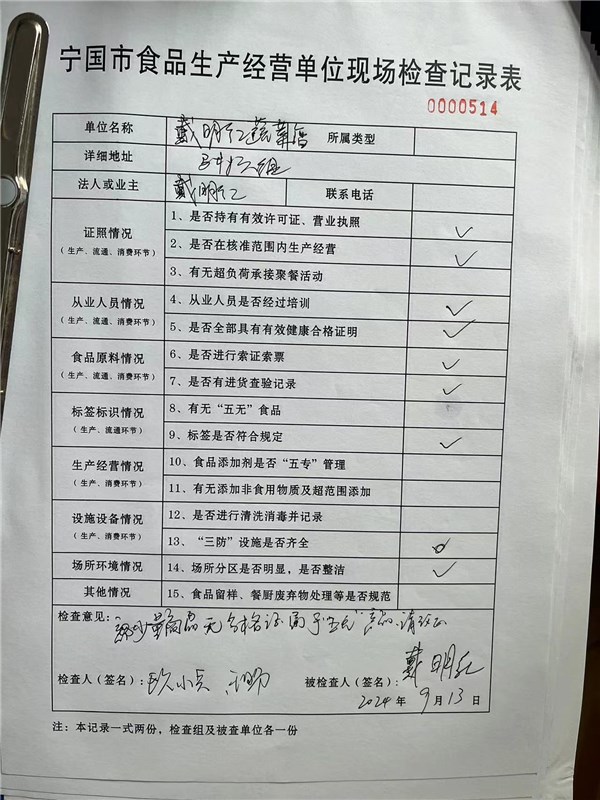 宁国市食品生产经营单位现场检查记录表
0000514
单位名称 戴明红蔬菜店 所属类型
详细地址
法人或业主 戴明红 联系电话
证照情况
（生产、流通、消费环节）
1、是否持有有效许可证、营业执照 ✓
2、是否在核准范围内生产经营 ✓
3、有无超负荷承接聚餐活动
从业人员情况
（生产、流通、消费环节）
4、从业人员是否经过培训 ✓
5、是否全部具有有效健康合格证明 ✓
食品原料情况
（生产、流通、消费环节）
6、是否进行索证索票 ✓
7、是否有进货查验记录 ✓
标签标识情况
（生产、流通环节）
8、有无“五无”食品
9、标签是否符合规定 ✓
生产经营情况
（生产、消费环节）
10、食品添加剂是否“五专”管理
11、有无添加非食用物质及超范围添加
设施设备情况
（生产、消费环节）
12、是否进行清洗消毒并记录
13、“三防”设施是否齐全
场所环境情况 14、场所分区是否明显，是否整洁 ✓
其他情况 15、食品留样、餐厨废弃物处理等是否规范
检查意见：
少量商品无合格证 属于“五无”产品，请改正
检查人（签名）： 被检查人（签名）：戴明红
2024年9月13日
注：本记录一式两份，检查组及被查单位各一份